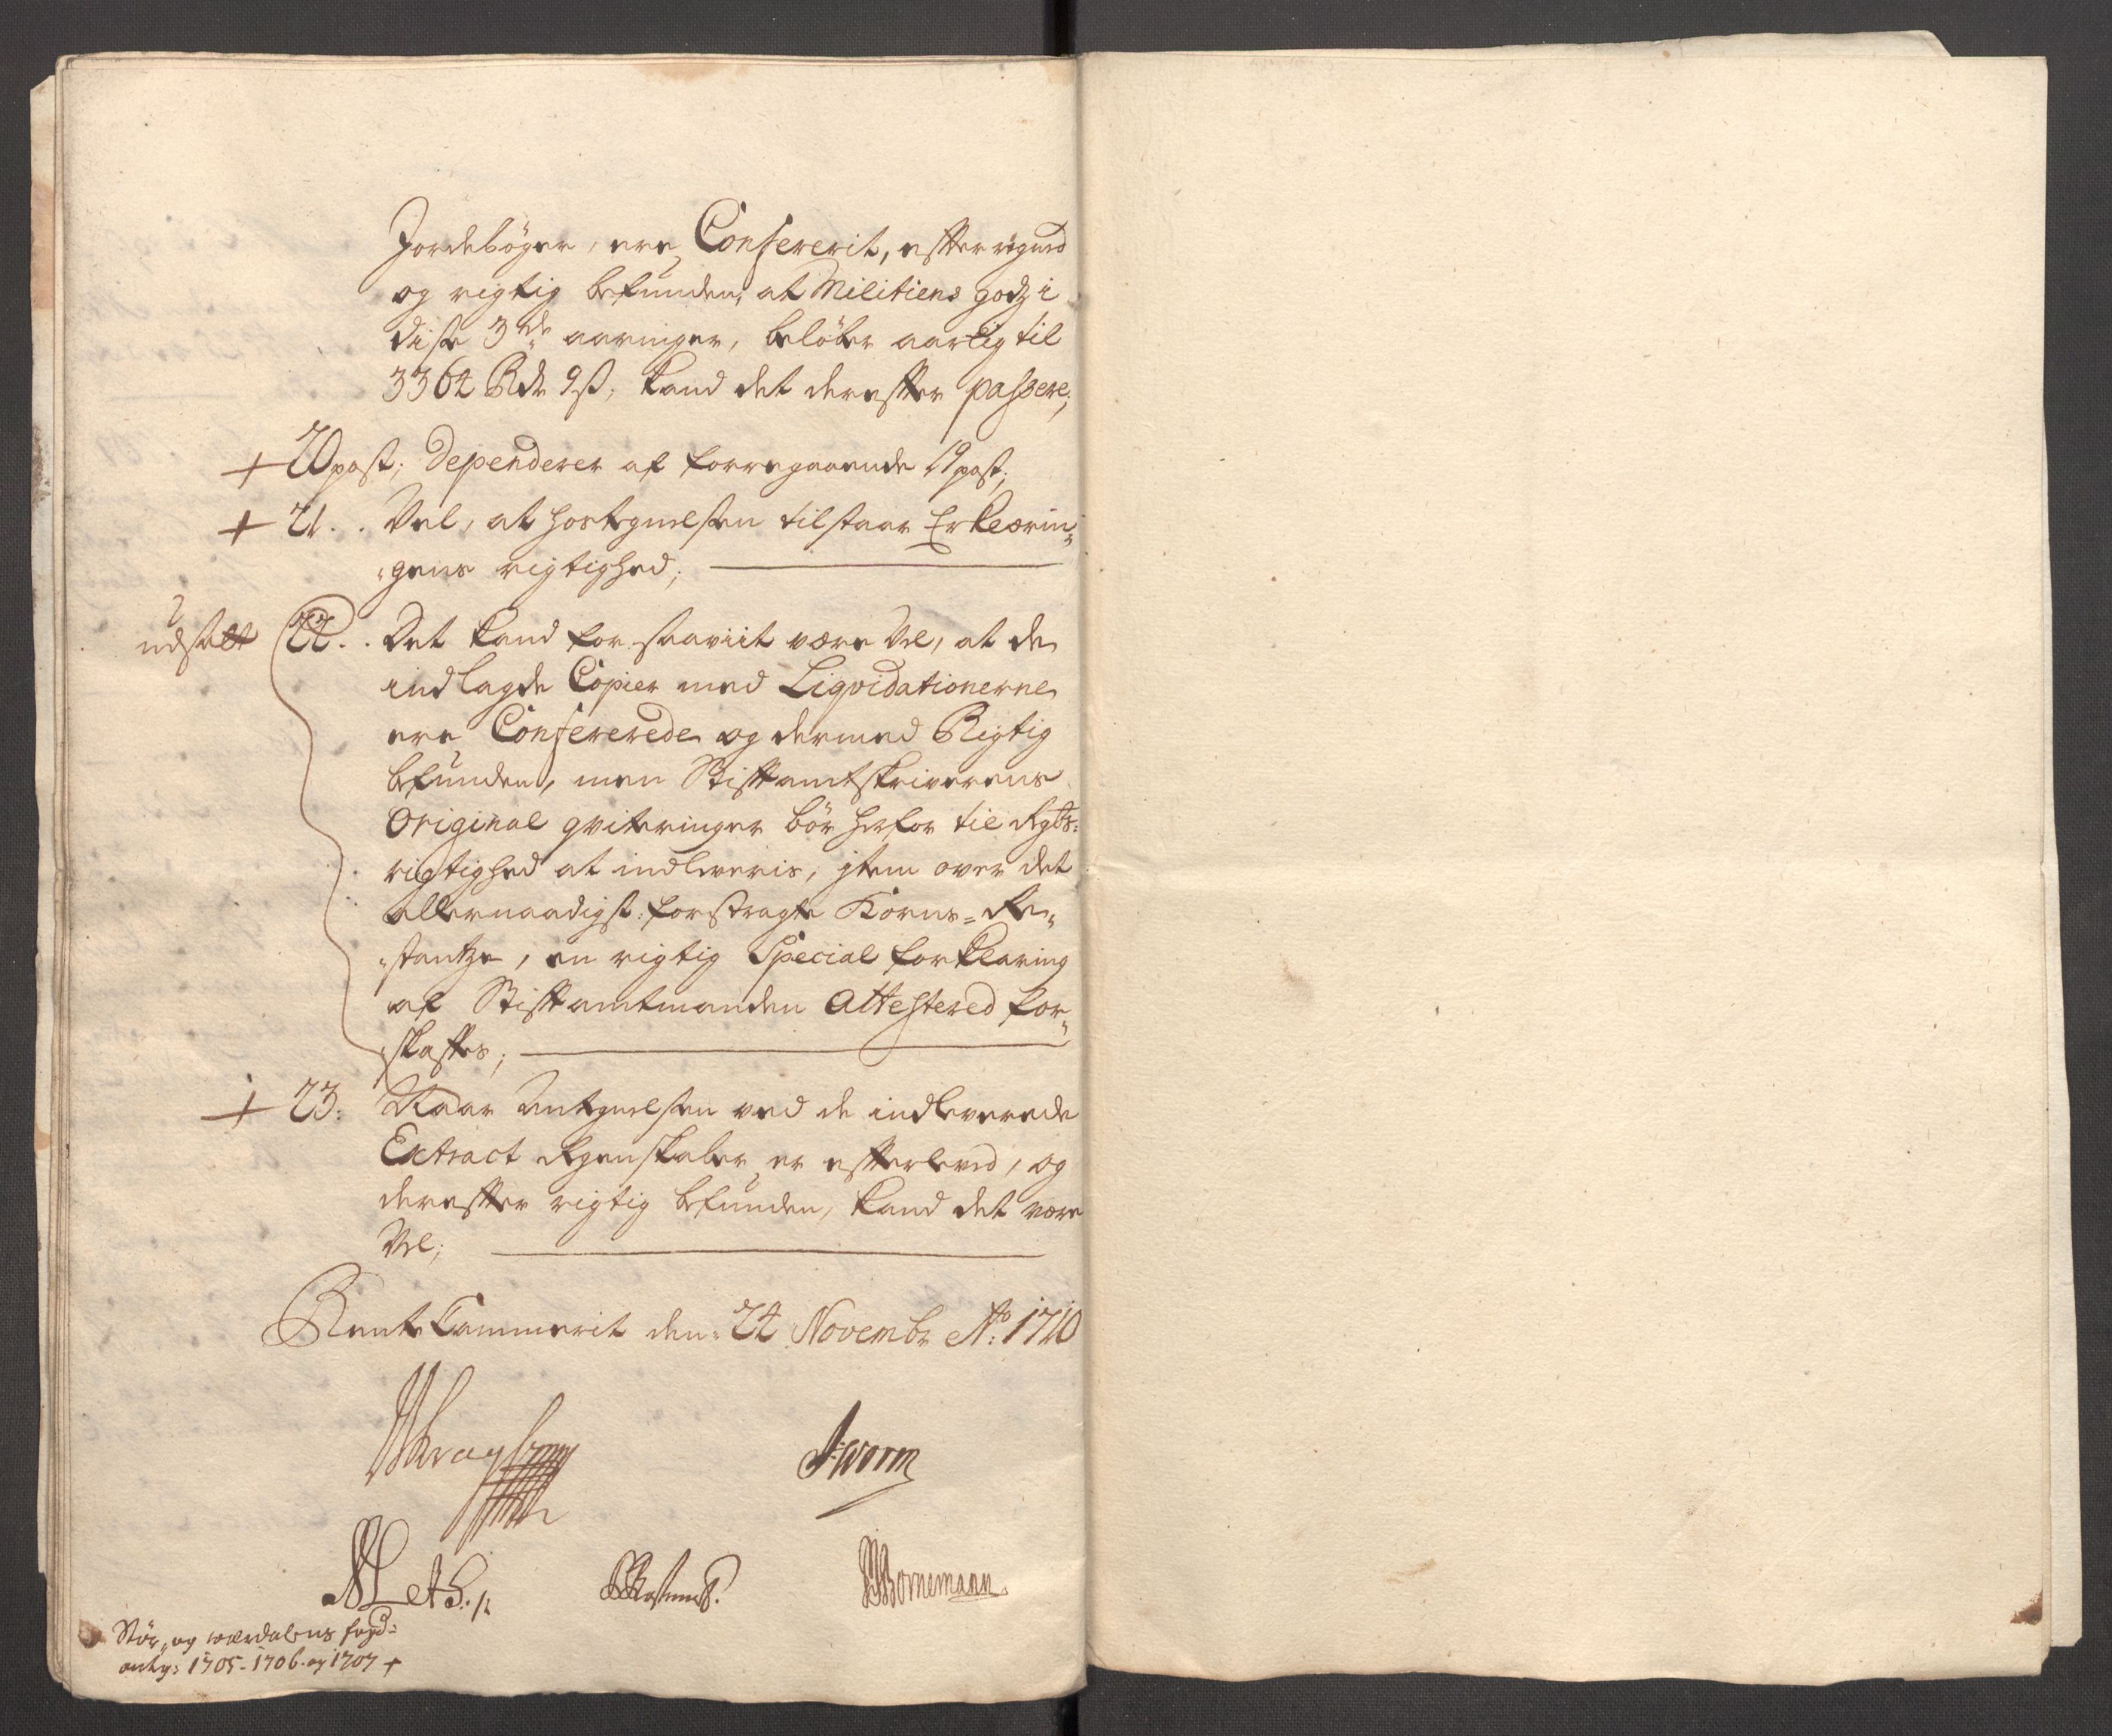 Jordebøger, ere Confererit, efter
og rigtig befunden, at Militiens godz i
diste 3de aaringer, beløber aarlig til
3364 Rdr 9 ß; kand det derefter passere;
+ 20 post; Dependerer af forregaaende 19 post;
+ 21. . Vel, at hostegnelsen tilstaar Erklærin„
„gens rigtighed;
udsatt 22. . Det kand for saaviit være Vel, at de
indlagde Copier med Liqvidationerne
ere Confererede og dermed Rigtig
befunden, men Stiftamtskriverens
Original qviteringer bør herfor til Rgbs:
rigtighed at indleveris, jtem over det
allernaadigst forstragte Korns-Re„
„stantze, en rigtig Special forklaring
af Stiftamtmanden Attestered for„
„skaffes;
+ 23: Naar Antegnelsen ved de indleverede
Extract Regenskaber er efterlevd, og
derefter rigtig befunden, kand det være
Vel;
Rente Cammerit den: 24 Novembr Ao: 1710
Worm
Bornemann
Stør„ og Værdalens fogd:
antg: 1705-1706. og 1707 +